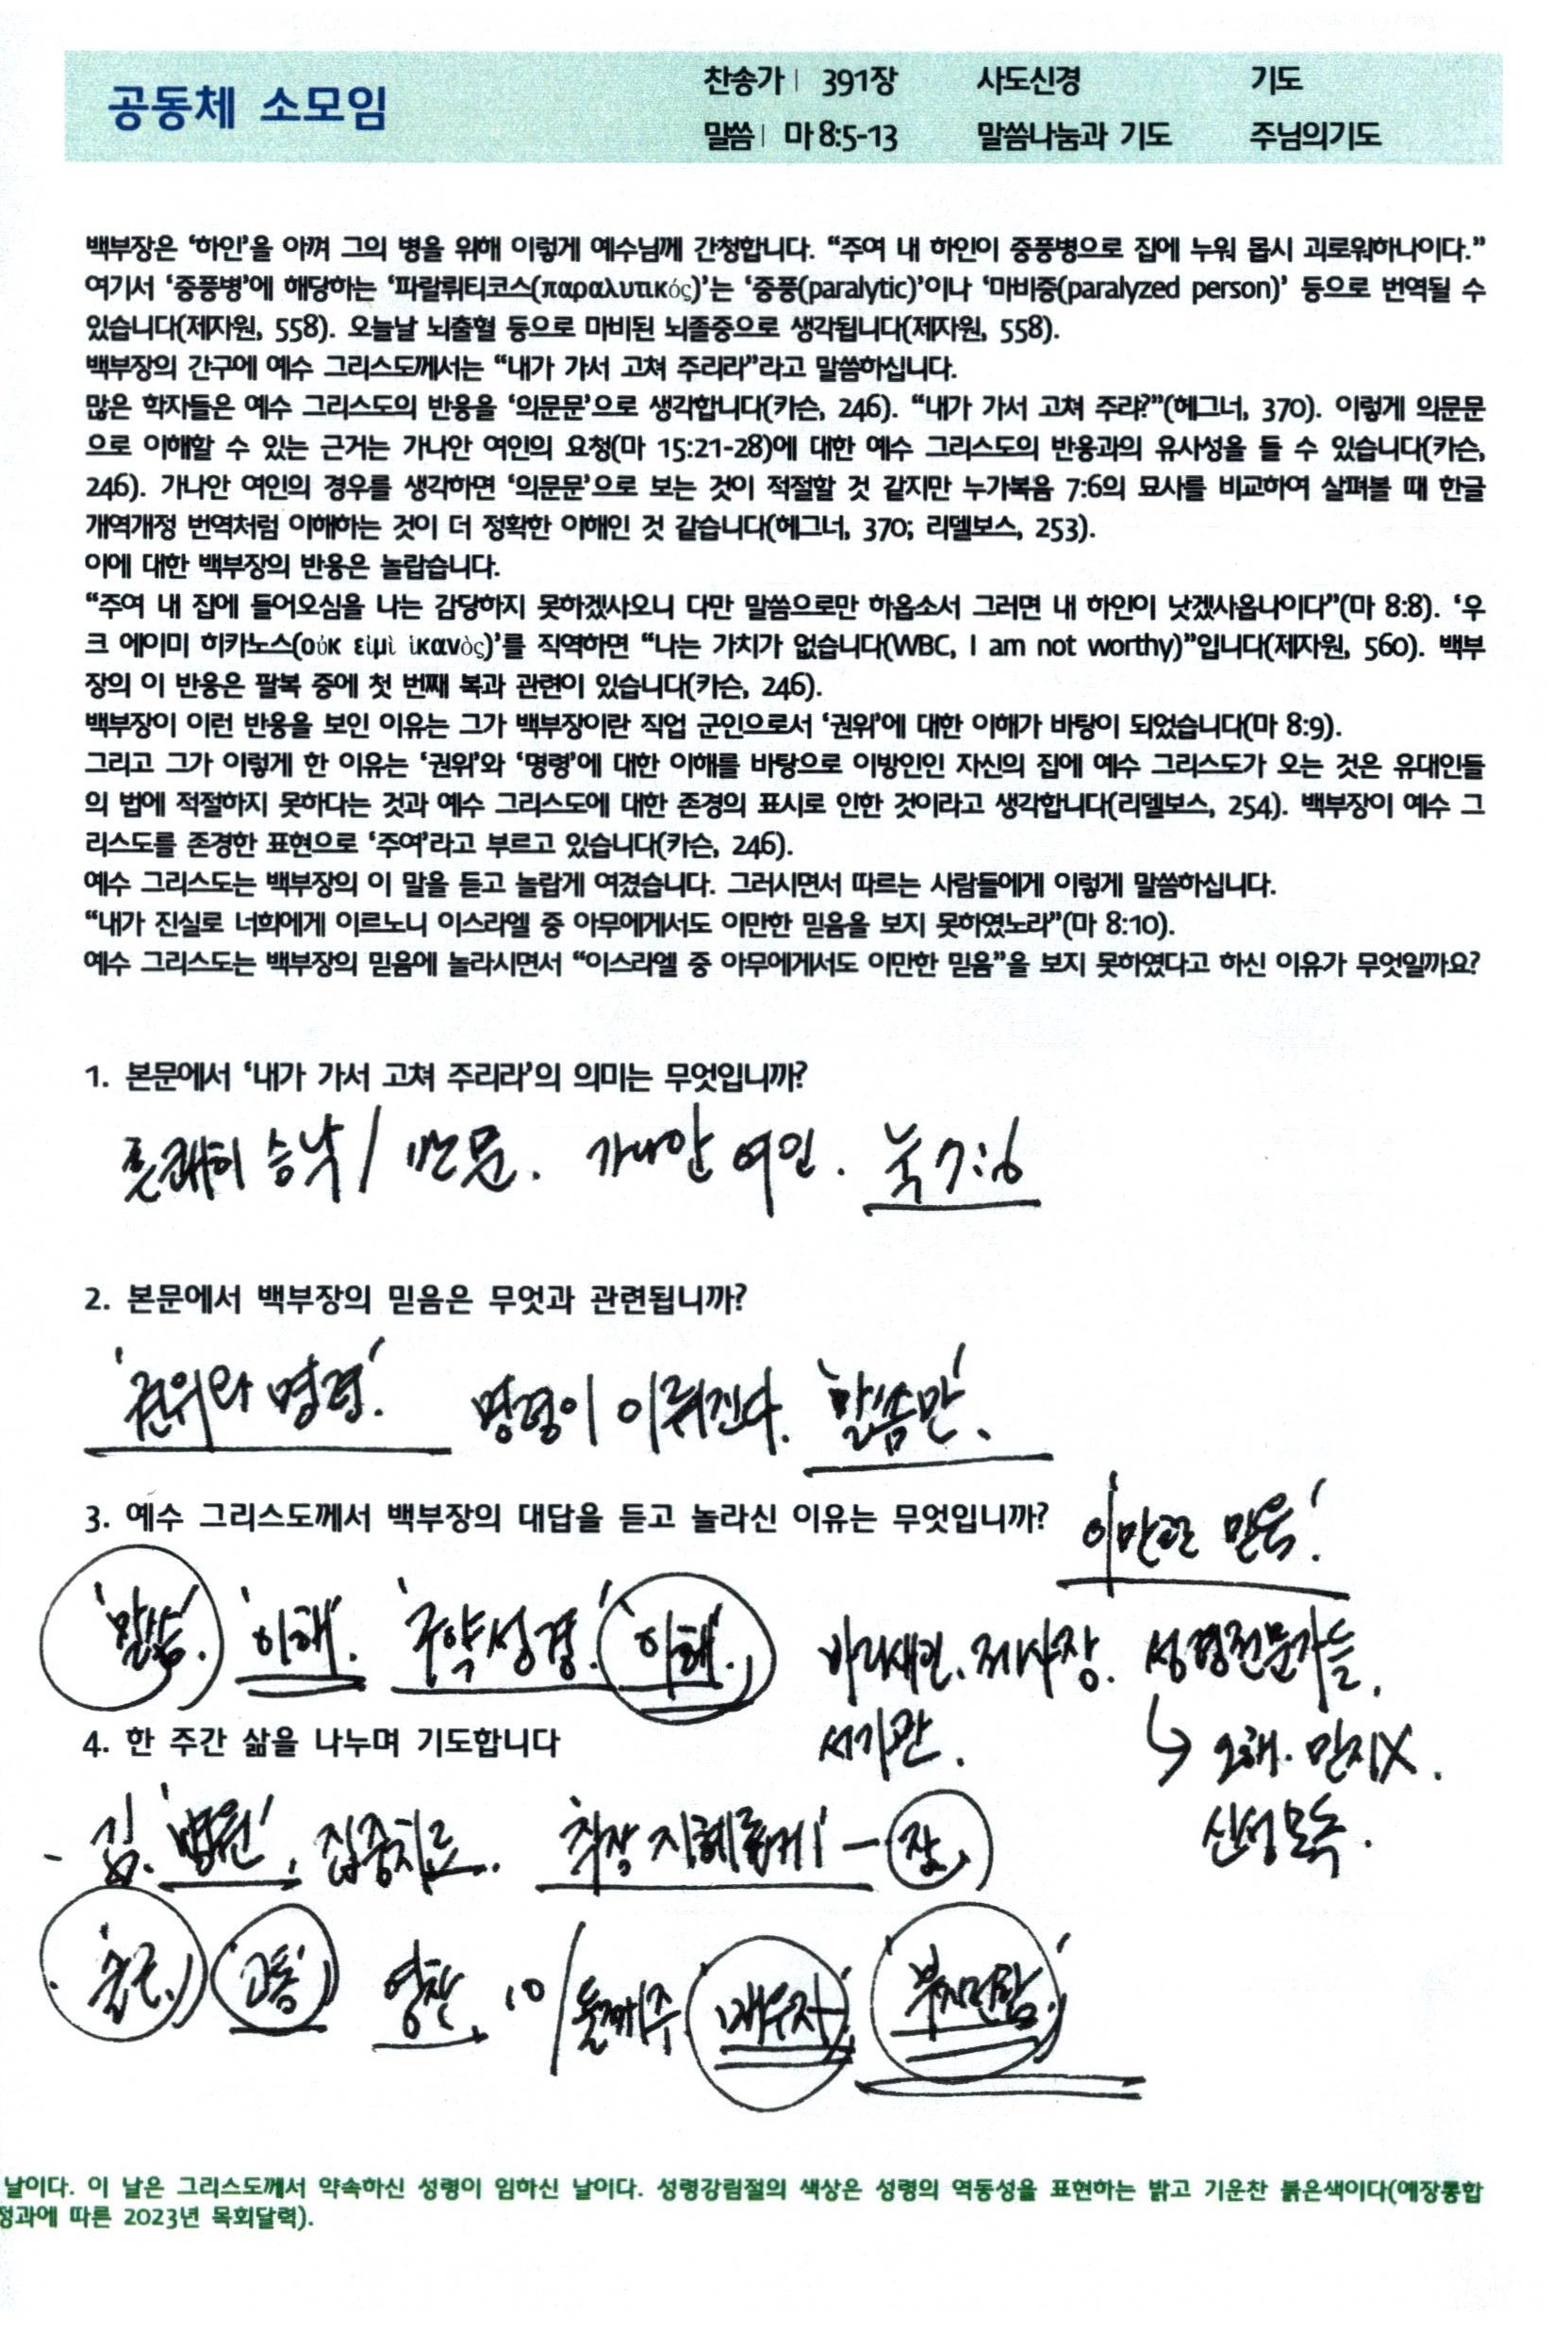 공동체 소모임
찬송가 | 391장 사도신경 기도
말씀 | 마 8:5-13 말씀나눔과 기도 주님의기도
백부장은 ‘하인’을 아껴 그의 병을 위해 이렇게 예수님께 간청합니다. “주여 내 하인이 중풍병으로 집에 누워 몹시 괴로워하나이다.”
여기서 ‘중풍병’에 해당하는 ‘파랄뤼티코스(παραλυτικός)’는 ‘중풍(paralytic)’이나 ‘마비증(paralyzed person)’ 등으로 번역될 수
있습니다(제자원, 558). 오늘날 뇌출혈 등으로 마비된 뇌졸중으로 생각됩니다(제자원, 558).
백부장의 간구에 예수 그리스도께서는 “내가 가서 고쳐 주리라”라고 말씀하십니다.
많은 학자들은 예수 그리스도의 반응을 ‘의문문’으로 생각합니다(카슨, 246). “내가 가서 고쳐 주랴?”(헤그너, 370). 이렇게 의문문
으로 이해할 수 있는 근거는 가나안 여인의 요청(마 15:21-28)에 대한 예수 그리스도의 반응과의 유사성을 들 수 있습니다(카슨,
246). 가나안 여인의 경우를 생각하면 ‘의문문’으로 보는 것이 적절할 것 같지만 누가복음 7:6의 묘사를 비교하여 살펴볼 때 한글
개역개정 번역처럼 이해하는 것이 더 정확한 이해인 것 같습니다(헤그너, 370; 리델보스, 253).
이에 대한 백부장의 반응은 놀랍습니다.
“주여 내 집에 들어오심을 나는 감당하지 못하겠사오니 다만 말씀으로만 하옵소서 그러면 내 하인이 낫겠사옵나이다”(마 8:8). ‘우
크 에이미 히카노스(οὐκ εἰμὶ ἱκανὸς)’를 직역하면 “나는 가치가 없습니다(WBC, I am not worthy)”입니다(제자원, 560). 백부
장의 이 반응은 팔복 중에 첫 번째 복과 관련이 있습니다(카슨, 246).
백부장이 이런 반응을 보인 이유는 그가 백부장이란 직업 군인으로서 ‘권위’에 대한 이해가 바탕이 되었습니다(마 8:9).
그리고 그가 이렇게 한 이유는 ‘권위’와 ‘명령’에 대한 이해를 바탕으로 이방인인 자신의 집에 예수 그리스도가 오는 것은 유대인들
의 법에 적절하지 못하다는 것과 예수 그리스도에 대한 존경의 표시로 인한 것이라고 생각합니다(리델보스, 254). 백부장이 예수 그
리스도를 존경한 표현으로 ‘주여’라고 부르고 있습니다(카슨, 246).
예수 그리스도는 백부장의 이 말을 듣고 놀랍게 여겼습니다. 그러시면서 따르는 사람들에게 이렇게 말씀하십니다.
“내가 진실로 너희에게 이르노니 이스라엘 중 아무에게서도 이만한 믿음을 보지 못하였노라”(마 8:10).
예수 그리스도는 백부장의 믿음에 놀라시면서 “이스라엘 중 아무에게서도 이만한 믿음”을 보지 못하였다고 하신 이유가 무엇일까요?
1. 본문에서 ‘내가 가서 고쳐 주리라’의 의미는 무엇입니까?
흔쾌히 승낙/ 반문. 가나안 여인. 눅 7:6
2. 본문에서 백부장의 믿음은 무엇과 관련됩니까?
‘권위와 명령’. 명령이 이뤄진다. ‘말씀만’.
3. 예수 그리스도께서 백부장의 대답을 듣고 놀라신 이유는 무엇입니까? 이만한 믿음!
‘말씀’. ‘이해’. ‘구약성경’. ‘이해’. 바리새인. 제사장. 성경전문자들.
서기관. ↳ 오해. 믿지X.
신성모독.
4. 한 주간 삶을 나누며 기도합니다
- 김. ‘병원’. 집중치료. 직장 지혜롭게 - 장.
‘고통’ 10/둘째주 ‘배우자’
날이다. 이 날은 그리스도께서 약속하신 성령이 임하신 날이다. 성령강림절의 색상은 성령의 역동성을 표현하는 밝고 기운찬 붉은색이다(예장통합
정과에 따른 2023년 목회달력).